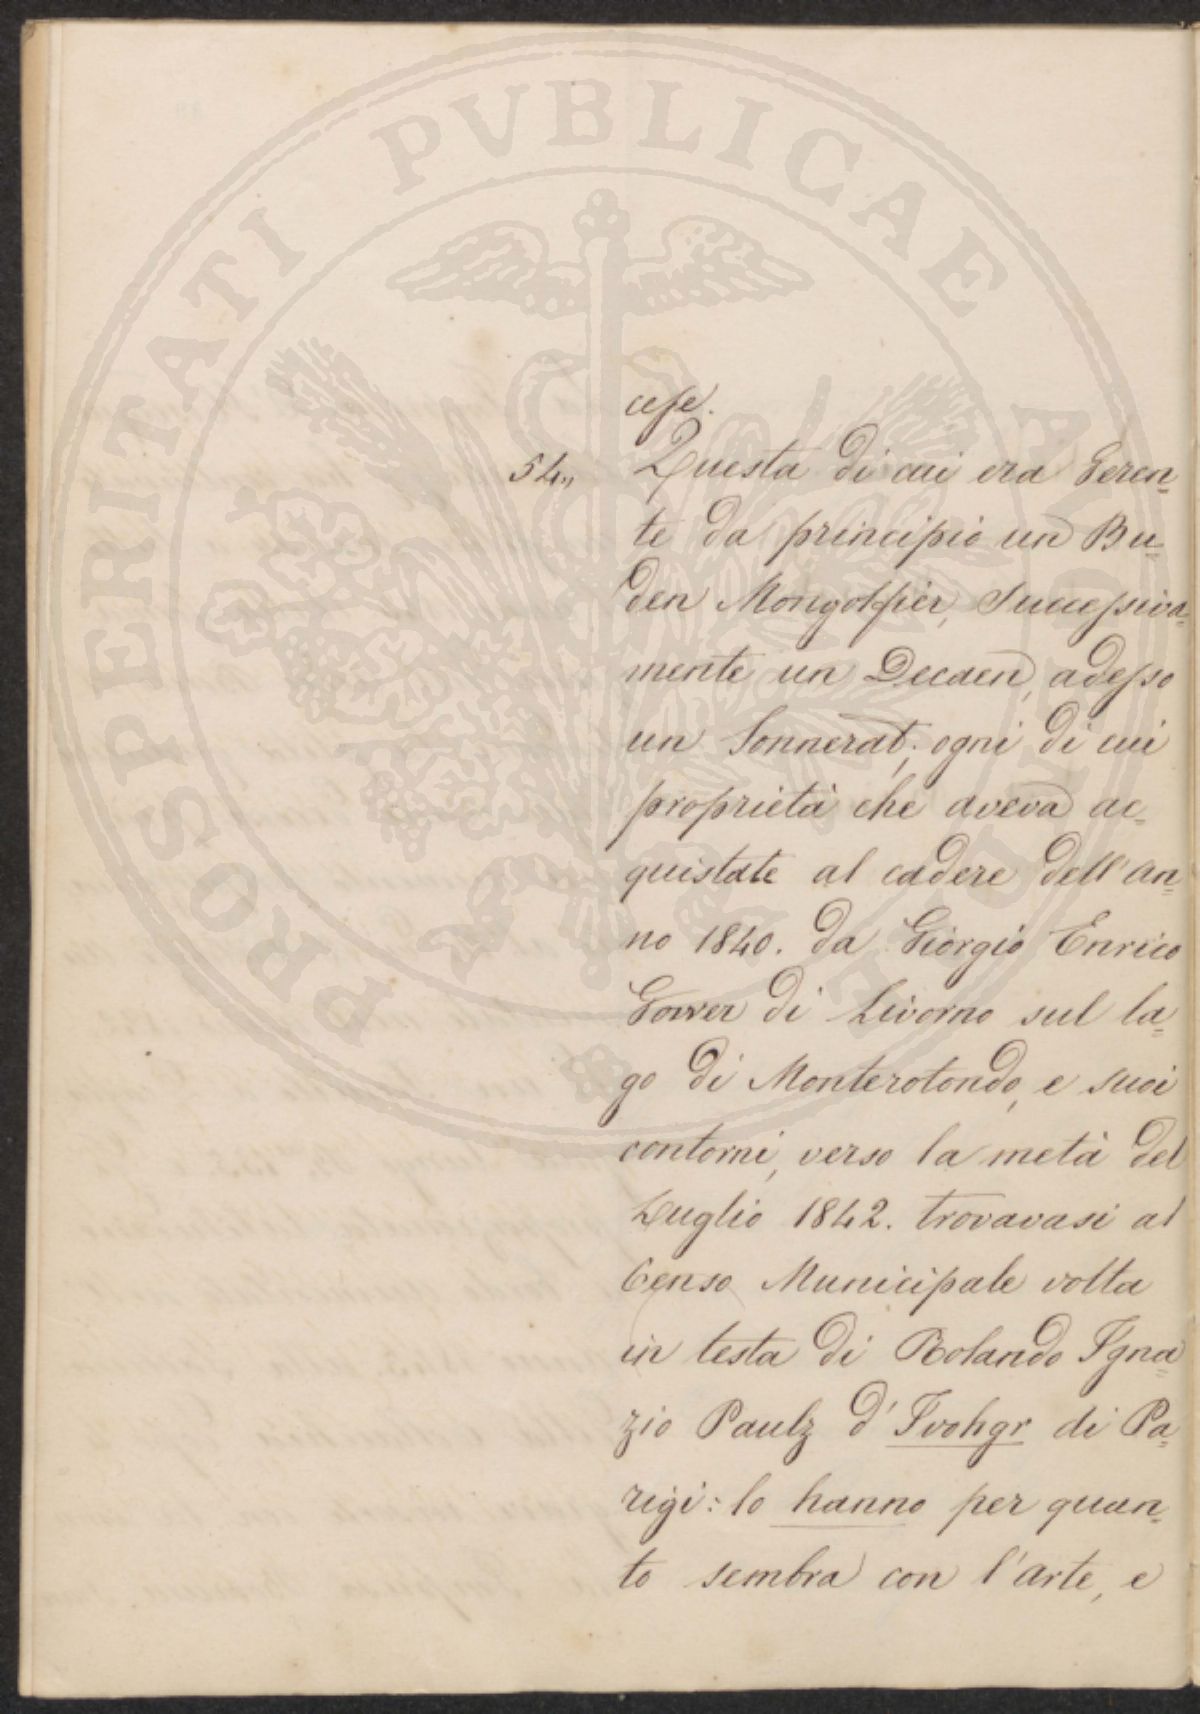 PROSPERITATI PVBLICAE AVGENDAE
cese.
54,, Questa di cui era Geren=
te da principio un Bu=
den Mongolfier, Successiva=
mente un Decaen, adesso
un Sonnerat; ogni di cui
proprietà che aveva ac=
quistate al cadere dell'an=
no 1840. da Giorgio Enrico
Gower di Livorno sul la=
go di Monterotondo, e suoi
contorni, verso la metà del
Luglio 1842. trovavasi al
Censo Municipale volta
in testa di Rolando Igna=
zio Paulz d'Ivohgr di Pa=
rigi: lo hanno per quan=
to sembra con l'arte, e